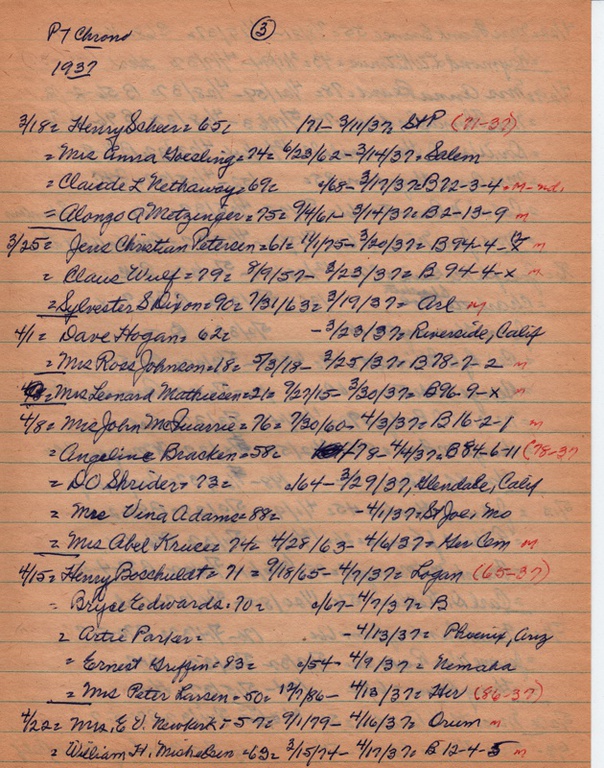 PT Chrono ③
1937
3/18 = Henry Scheer = 65 = 1871 - 3/11/37 = StP (71-37)
= Mrs Anna Goesling = 74 = 6/23/62 - 3/14/37 = Salem
= Claude L Nethaway = 69 = c/68 - 3/17/37 = B72-3-4 = M-nd.
= Alonzo A Motzinger = 75 = 9/4/61 - 3/14/37 = B2-13-9 m
3/25 = Jens Christian Petersen = 61 = 3/20/37 = B94-4- m
= Claus Wulf = 79 = 8/9/57 - 3/23/37 = B 94-4-x m
= Sylvester S Dixon = 90 = 7/31/63 = 3/19/37 = Arl m
4/1 = Dave Hogan = 62 = - 3/23/37 = Riverside, Calif
= Mrs Ross Johnson = 18 = 5/3/18 - 3/25/37 = B78-7-2 m
= Mrs Leonard Mathiesen = 21 = 9/27/15 - 3/30/37 = B96-9-x m
4/8 = Mrs John McQuarrie = 76 = 7/30/60 - 4/3/37 = B16-2-1 m
= Angeline Bracken = 58 = 78 - 4/4/37 = B84-6-11 (78-37
= DO Shrider = 73 = c/64 - 3/29/37, Glendale, Calif
= Mrs Vina Adams = 88 = - 4/1/37 = St Joe, Mo
= Mrs Abel Kruse = 74 = 4/28/63 - 4/6/37 = Her Cem m
4/15 = Henry Boschuldt = 71 = 9/18/65 - 4/7/37 = Logan (65-37)
= Bryce Edwards = 70 = c/67 - 4/7/37 = B
= Artie Parker = - 4/13/37 = Phoenix, Ariz
= Ernest Griffin = 83 = c/54 - 4/9/37 = Nemaha
= Mrs Peter Larsen = 50 = 12/7/86 - 4/13/37 = Her (86-37)
4/22 = Mrs. E V. Newkirk = 57 = 9/1/79 - 4/16/37 = Orum m
= William H. Michelsen = 63 = 3/15/74 - 4/17/37 = B 12-4-5 m